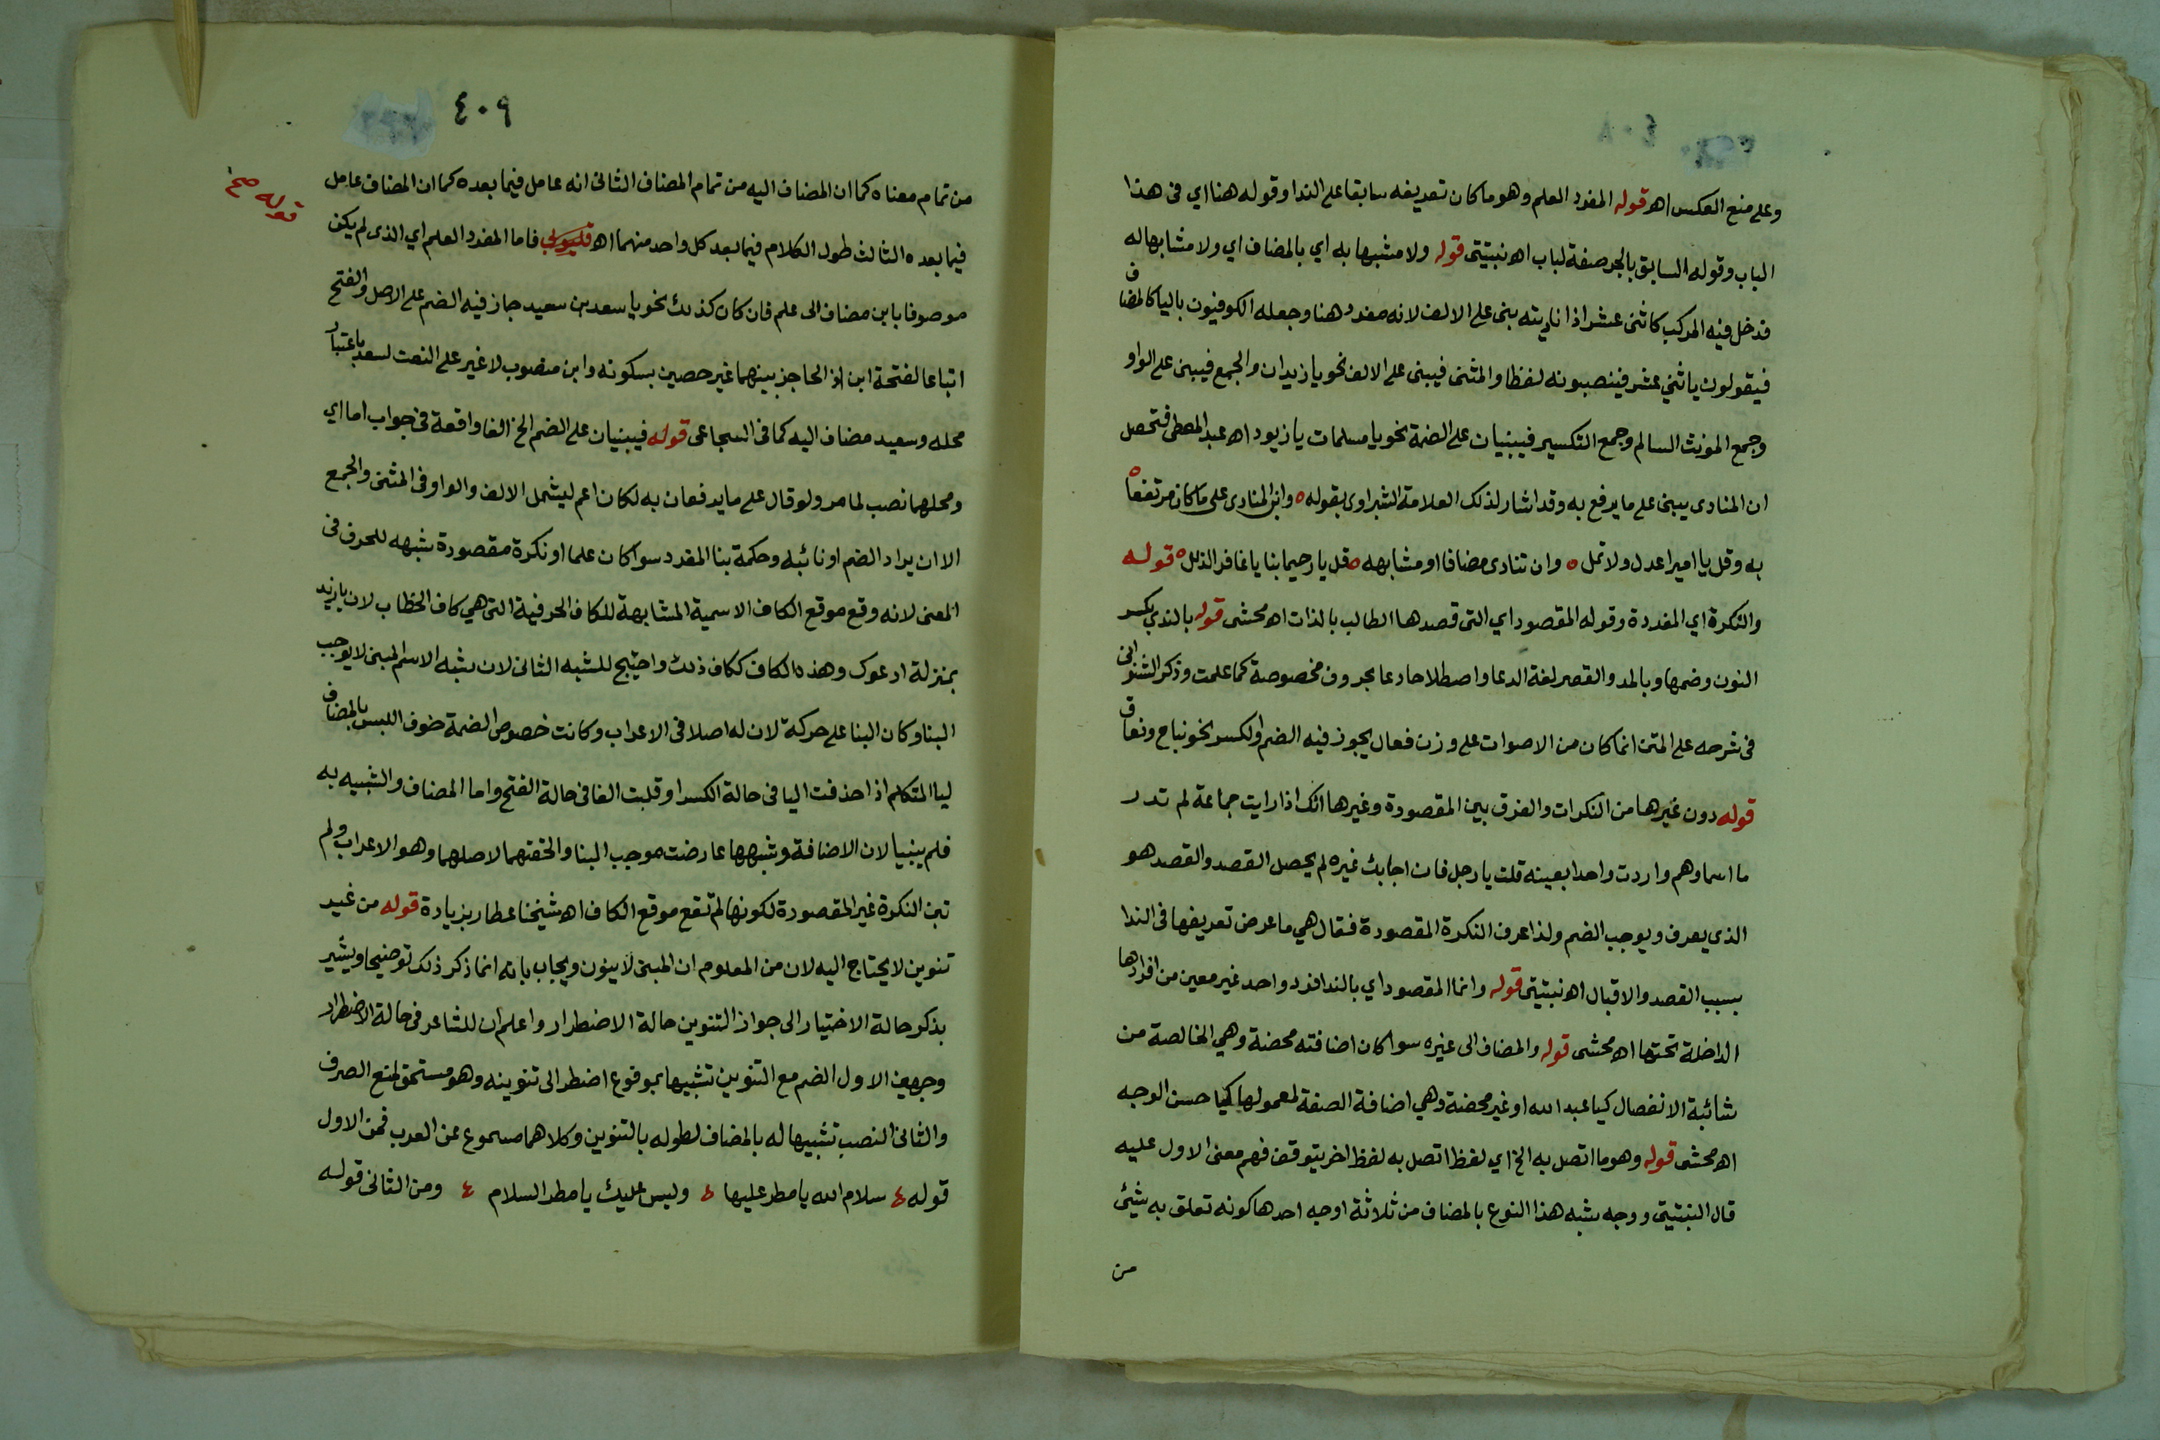 ٤٠٨
وعلى منع العكس اهـ قوله المفرد العلم وهو ما كان تعريفه سابقا على الندا وقوله هنا اي في هذا
الباب وقوله السابق بالجر صفة لباب اهـ نبتيتى قوله ولا مشبها به اي بالمضاف اي ولا مشابها له
فدخل فيه المركب كاثنى عشر اذا ناديته بنى على الالف لانه مفرد هنا وجعله الكوفيون باليا كالمضاف
فيقولون يا ثني عشر فينصبونه لفظا والمثنى فيبنى على الالف نحو يا زيدان والجمع فيبنى على الواو
وجمع المونث السالم وجمع التكسير فيبنيان على الضمة نحو يا مسلمات يا زيود اهـ عبد المعطى فتحصل
ان المنادى يبنى على ما يرفع به وقد اشار لذلك العلامة الشبراوى بقوله ه وابن المنادى على ما كان مرتفعا ه
به وقل يا اميرا عدل ولا تمل ه وان تنادى مضافا او مشابهه ه قل يا رحيما بنا يا غافر الذلل ه قوله
والنكرة اي المفردة وقوله المقصود اي التى قصدها الطالب بالذات اهـ محشى قوله بالندي بكسر
النون وضمها وبالمد والقصر لغة الدعا واصطلاحا دعا بحروف مخصوصة كما علمت وذكر الشنوانى
فى شرحه على المتن انما كان من الاصوات على وزن فعال يجوز فيه الضم والكسر نحو نباح ونعاق
قوله دون غيرها من النكرات والفرق بين المقصودة وغيرها انك اذا رايت جماعة لم تدر
ما اسماوهم واردت واحدا بعينه قلت يا رجل فان اجابك غيره لم يحصل القصد والقصد هو
الذى يعرف ويوجب الضم ولذا عرف النكرة المقصودة فقال هي ما عرض تعريفها فى الندا
بسبب القصد والاقبال اهـ نبتيتى قوله وانما المقصود اي بالندا فرد واحد غير معين من افرادها
الداخلة تحتها اهـ محشى قوله والمضاف الى غيره سوا كان اضافته محضة وهي الخالصة من
شائبة الانفصال كيا عبد الله او غير محضة وهي اضافة الصفة لمعمولها كيا حسن الوجه
اهـ محشى قوله وهو ما اتصل به الخ اي لفظ اتصل به لفظ اخر يتوقف فهم معنى الاول عليه
قال النبتيتى ووجه شبه هذا النوع بالمضاف من ثلاثة اوجه احدها كونه تعلق به شيئ
من
٤٠٩
من تمام معناه كما ان المضاف اليه من تمام المضاف الثانى انه عامل فيما بعده كما ان المضاف عامل
قوله صح
فيما بعده الثالث طول الكلام فيما بعد كل واحد منهما اهـ قليوبي فاما المفرد العلم اي الذى لم يكن
موصوفا بابن مضاف الى علم فان كان كذلك نحو يا سعد بن سعيد جاز فيه الضم على الاصل والفتح
اتباعا لفتحة ابن اذ الحاجز بينهما غير حصين بسكونه وابن منصوب لا غير على النعت لسعد باعتبار
محله وسعيد مضاف اليه كما فى السجاعى قوله فيبنيان على الضم الخ الفا واقعة فى جواب اما اي
ومحلهما نصب لما مر ولو قال على ما يرفعان به لكان اعم ليشمل الالف والواو فى المثنى والجمع
الا ان يراد الضم او نائبه وحكمة بنا المفرد سوا كان علما او نكرة مقصودة شبهه للحرف فى
المعنى لانه وقع موقع الكاف الاسمية المشابهة للكاف الحرفية التى هي كاف الخطاب لان يا زيد
بمنزلة ادعوك وهذه الكاف ككاف ذلك واحتيج للشبه الثانى لان شبه الاسم المبنى لا يوجب
البنا وكان البنا على حركة لان له اصلا فى الاعراب وكانت خصوص الضمة خوف اللبس بالمضاف
ليا المتكلم اذا حذفت اليا فى حالة الكسر او قلبت الفا فى حالة الفتح واما المضاف والشبيه به
فلم يبنيا لان الاضافة وشبهها عارضت موجب البنا والحقتهما لاصلهما وهو الاعراب ولم
تبن النكرة غير المقصودة لكونها لم تقع موقع الكاف اهـ شيخنا عطار بزيادة قوله من غير
تنوين لا يحتاج اليه لان من المعلوم ان المبنى لا ينون ويجاب بانه انما ذكر ذلك توضيحا ويشير
بذكر حالة الاختيار الى جواز التنوين حالة الاضطرار واعلم ان للشاعر فى حالة الاضطرار
وجهين الاول الضم مع التنوين تشبيها بمرفوع اضطر الى تنوينه وهو مستحق لمنع الصرف
والثانى النصب تشبيها له بالمضاف لطوله بالتنوين وكلاهما مسموع عن العرب فمن الاول
قوله ٤ سلام الله يا مطر عليها ٤ وليس عليك يا مطر السلام ٤ ومن الثانى قوله